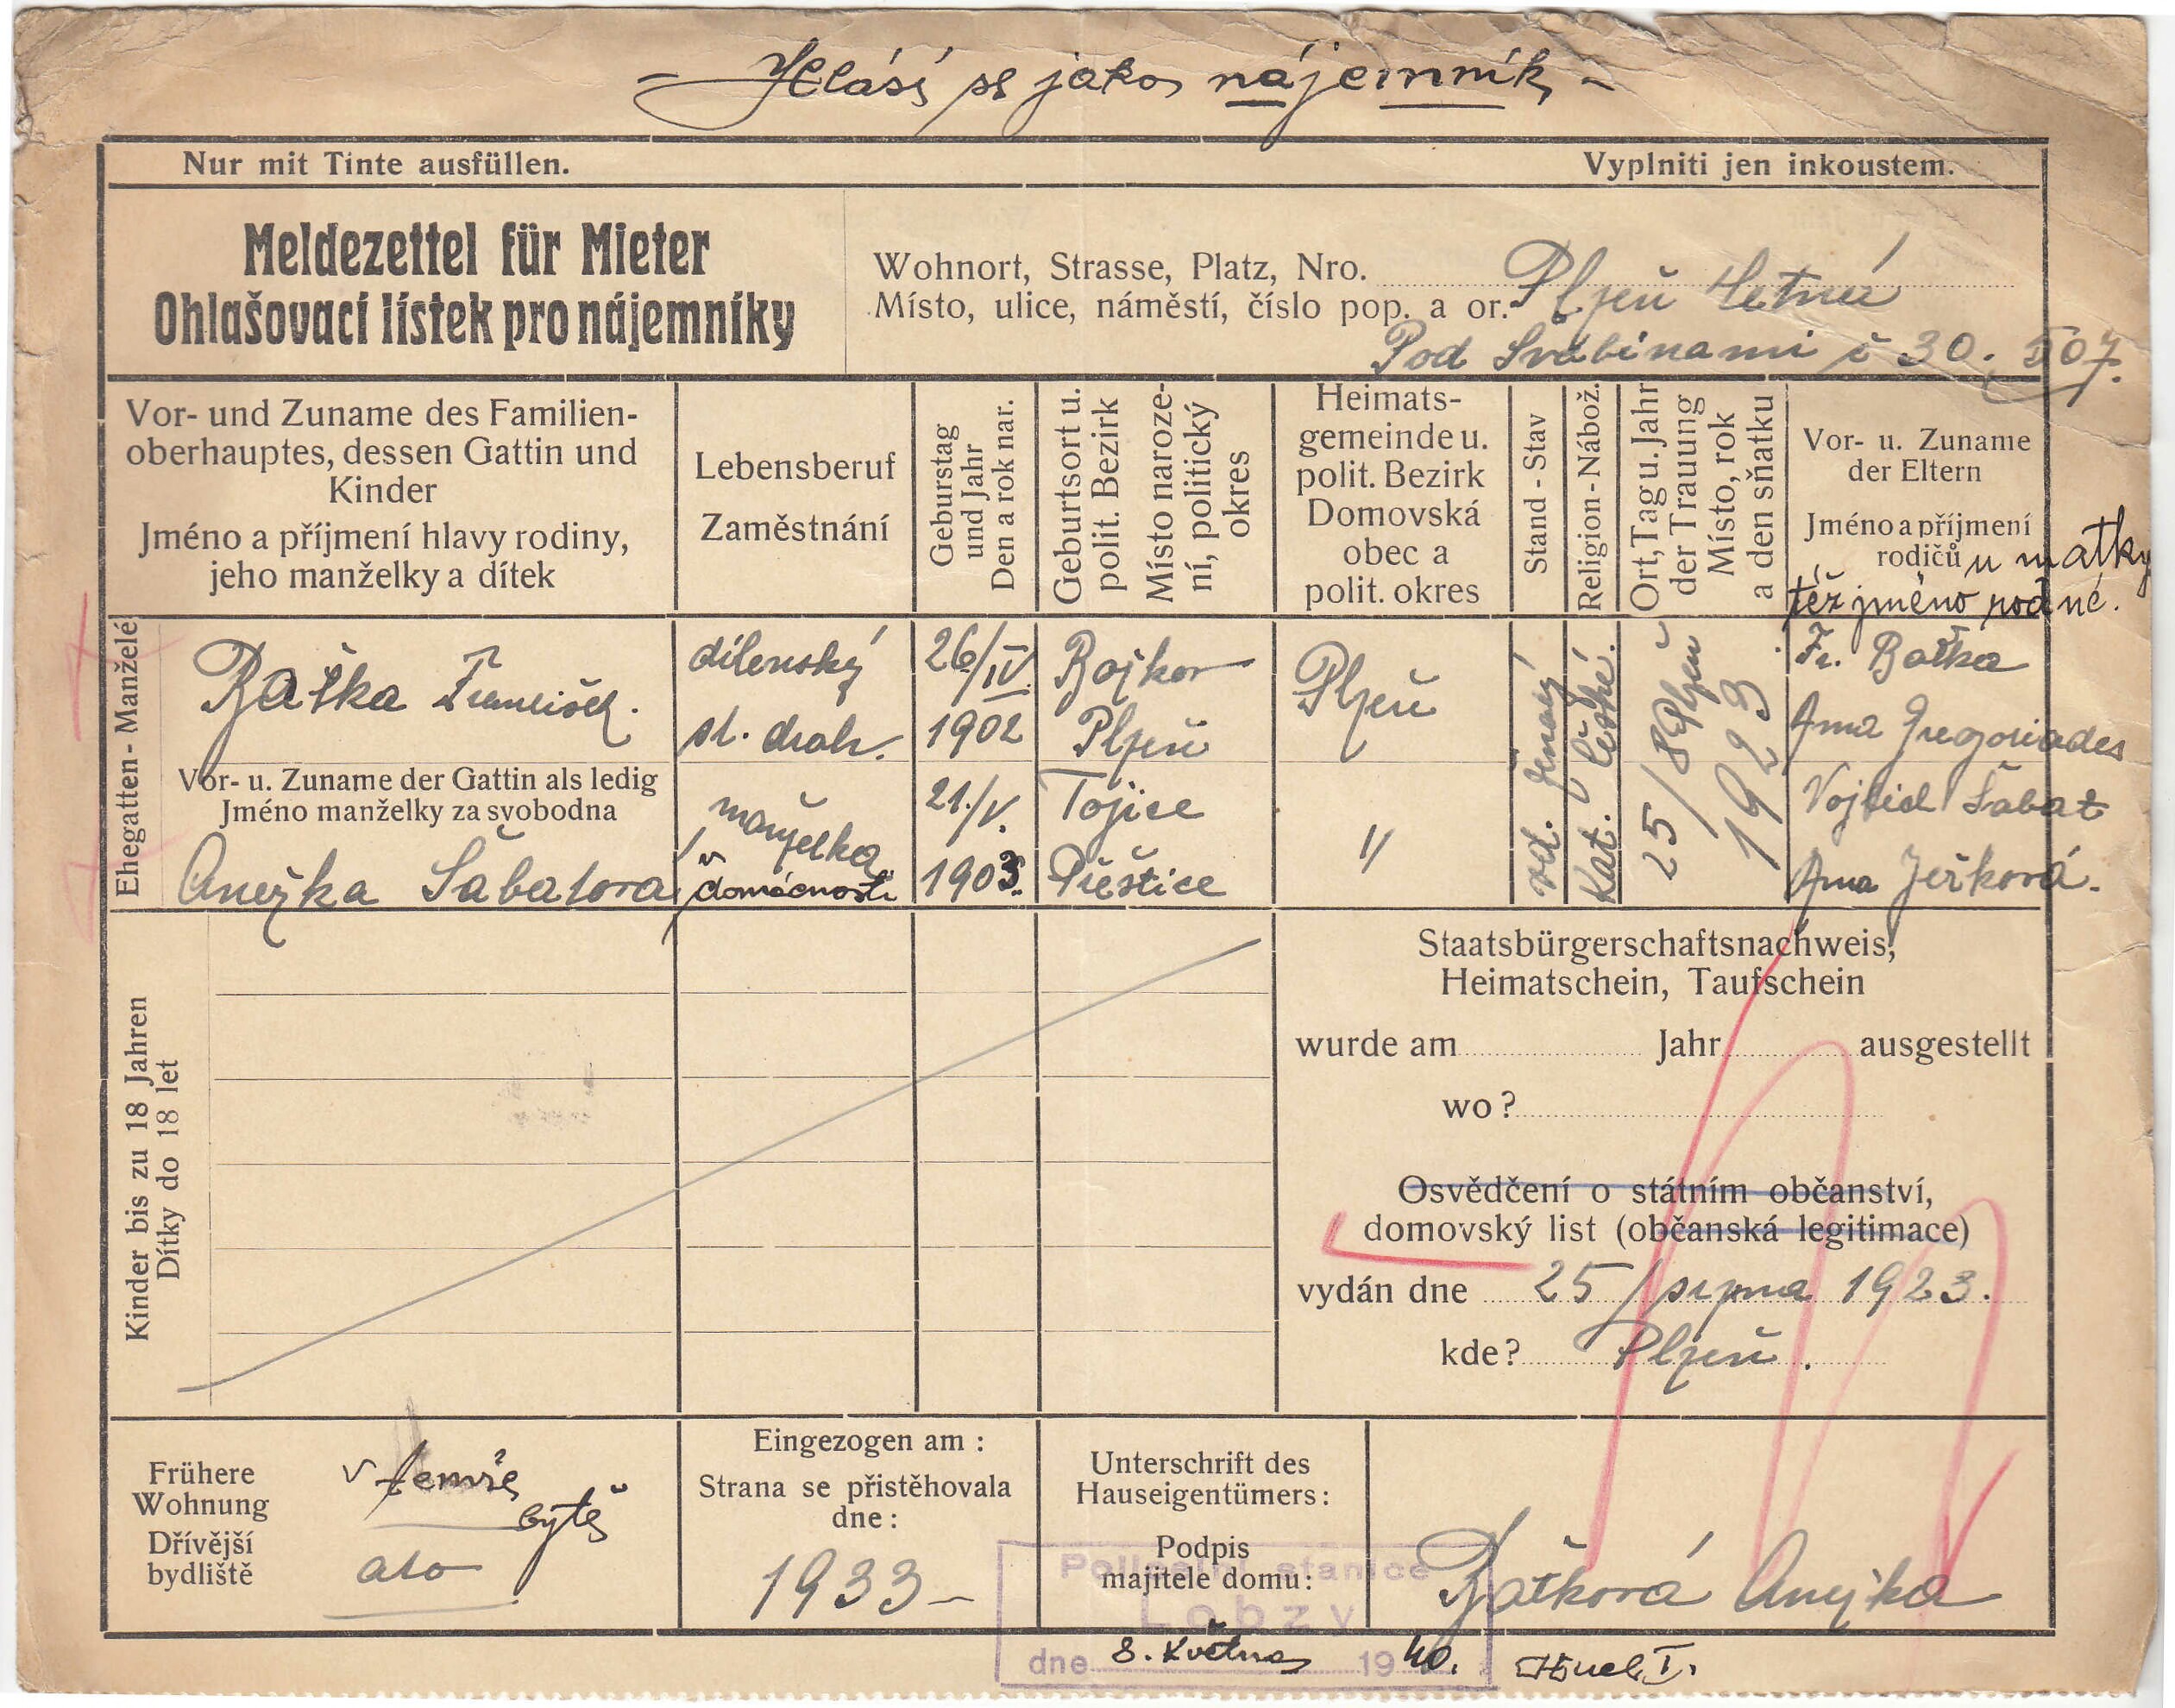 Hlásí se jako nájemník
Nur mit Tinte ausfüllen.
Vyplniti jen inkoustem.
Meldezettel für Mieter
Ohlašovací lístek pro nájemníky
Wohnort, Strasse, Platz, Nro.
Místo, ulice, náměstí, číslo pop. a or. Plzeň Letná
Pod Švabinami č 30. 507.
Vor- und Zuname des Familien-
oberhauptes, dessen Gattin und
Kinder
Jméno a příjmení hlavy rodiny,
jeho manželky a dítek
Lebensberuf
Zaměstnání
Geburstag
und Jahr
Den a rok nar.
Geburtsort u.
polit. Bezirk
Místo naroze-
ní, politický
okres
Heimats-
gemeinde u.
polit. Bezirk
Domovská
obec a
polit. okres
Stand - Stav
Religion - Nábož.
Ort, Tag u. Jahr
der Trauung
Místo, rok
a den sňatku
Vor- u. Zuname
der Eltern
Jméno a příjmení
rodičů u matky
též jméno rodné.
Ehegatten - Manželé
Baťka František.
dílenský
st. drah.
26/IV.
1902
Bojkov
Plzeň
Plzeň
žen.
Kat. České.
25/8 Plzeň
1923
Fr. Baťka
Anna Gregoriades
Vor- u. Zuname der Gattin als ledig
Jméno manželky za svobodna
Anežka Šabatova
manželka
v domácnosti
21./V.
1903.
Tojice
Přeštice
"
vd.
Vojtěch Šabat
Anna Ježková.
Kinder bis zu 18 Jahren
Dítky do 18 let
Staatsbürgerschaftsnachweis,
Heimatschein, Taufschein
wurde am Jahr ausgestellt
wo?
Osvědčení o státním občanství,
domovský list (občanská legitimace)
vydán dne 25/srpna 1923.
kde? Plzeň.
Frühere
Wohnung
Dřívější
bydliště
v temže
bytě
ato
Eingezogen am:
Strana se přistěhovala
dne:
1933
Unterschrift des
Hauseigentümers:
Podpis
majitele domu:
Baťková Anežka
Policejní stanice
Lobzy
dne 8. května 1940.